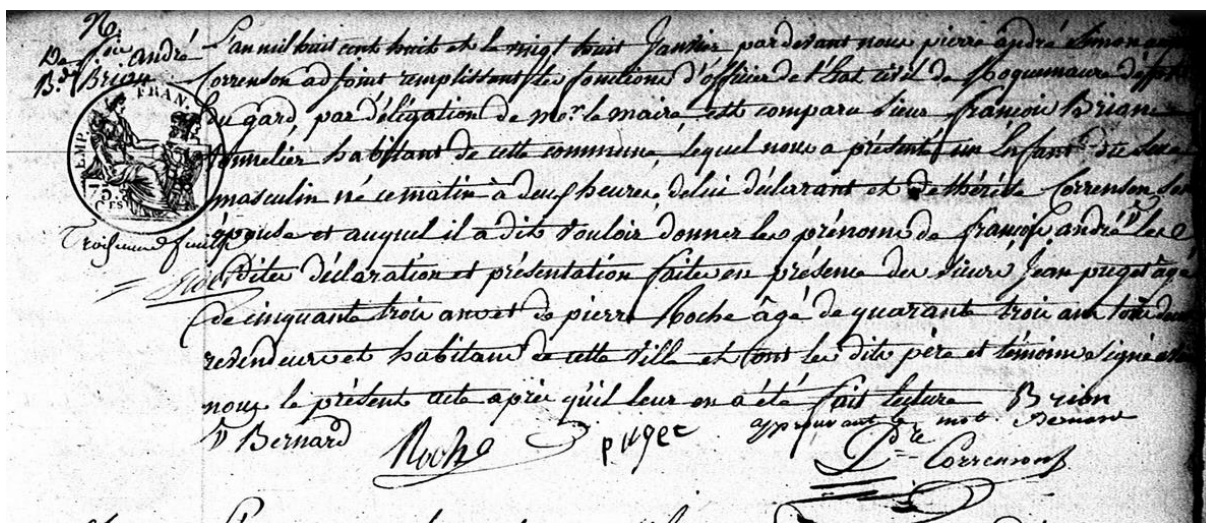 N.ce
De foix André
B.d Brion
L'an mil huit cent huit et le vingt huit Janvier pardevant nous pierre andré Simon
Correnson adjoint remplissant les fonctions d'officier de l'Etat civil de Roquemaure
du gard, par délégation de mo.r le maire est comparu sieur françois Brion
tonnelier habitant de cette commune, lequel nous a présenté un Enfant du sexe
masculin né ce matin à deux heures, de lui déclarant et de thérèse Correnson son
épouse et auquel il a dit vouloir donner les prénoms de françois andré les
dites déclaration et présentation faites en présence des sieurs Jean puget âgé
de cinquante trois ans et de pierre Roche âgé de quarante trois ans tous deux
revendeurs et habitans de cette ville et ont les dits père et témoins signé avec
nous le présent acte après qu'il leur en a été fait lecture Brion
v Bernard Roche puget approuvant le mot Bernard
P.re Correnson
EMP. FRAN.
75 CES
Troisieme feuille